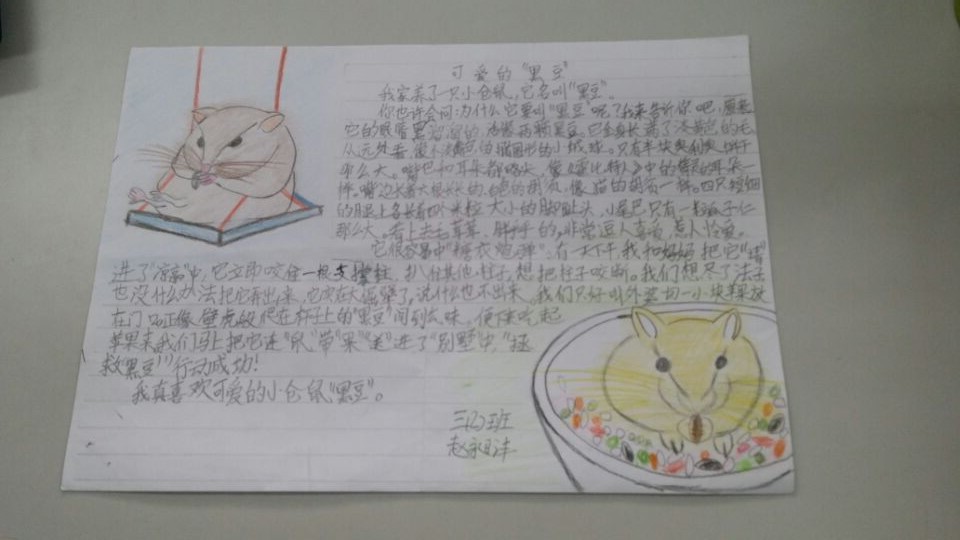 可爱的"黑豆"
我家养了一只小仓鼠,它名叫"黑豆"。
你也许会问:为什么它要叫"黑豆"呢?我来告诉你吧,原来
它的眼睛黑溜溜的,像两颗黑豆。它全身长满了淡黄色的毛,
从远处看,像个淡黄色椭圆形的小绒球。只有半块奥利奥饼干
那么大。嘴巴和耳朵都
样。嘴边长着大根长长的、白色的胡须,像猫的胡须一样。四只短细
的腿上各长着四个米粒大小的脚趾头,小尾巴只有一粒瓜子仁
那么大。看上去毛茸茸、胖乎乎的,非常逗人喜爱,惹人怜爱。
它很容易中"糖衣炮弹"。有一天下午,我和妈妈把它"请"
进了"凉亭"中,它立即咬住一根支撑柱,扒付其他柱子,想把柱子咬断。我们想尽了法子
也没什么办法把它弄出来,它实在太倔犟了,说什么也不出来。我们只好叫外婆切一小块苹果放
在门口正像壁虎般爬在杯子上的"黑豆"闻到
苹果来我们马上把它连"鼠"带"果""送"进了"别墅"中,"拯
救黑豆"行动成功!
我真喜欢可爱的小仓鼠,"黑豆"。
班
赵